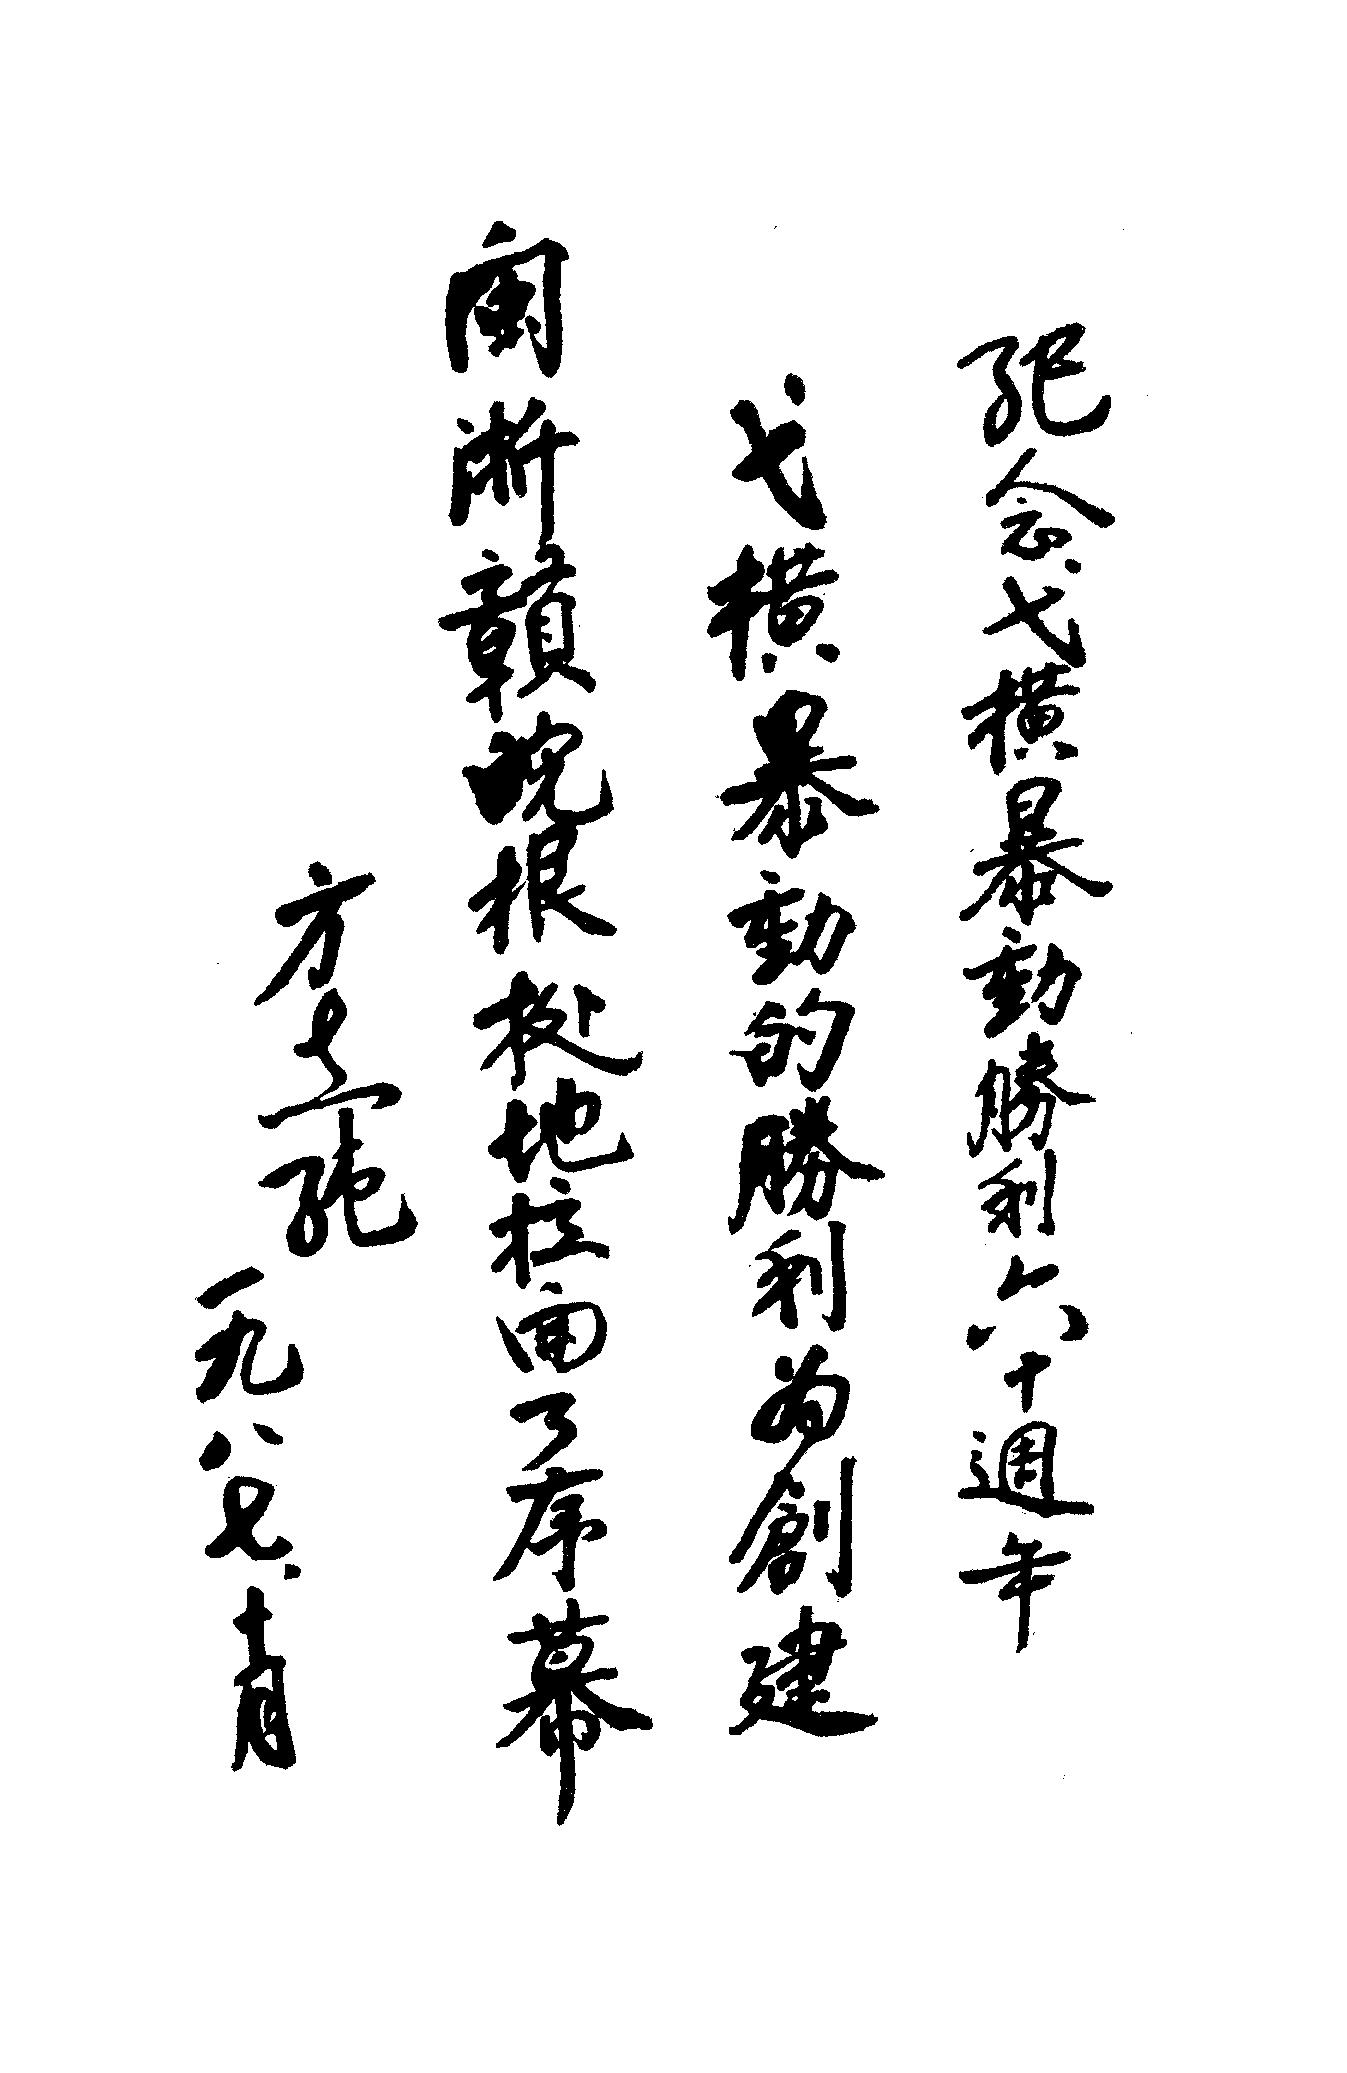 紀念弋橫暴動勝利六十週年
弋橫暴動的勝利為創建
閩浙贛皖根据地拉開了序幕
方志純
一九八七.十月